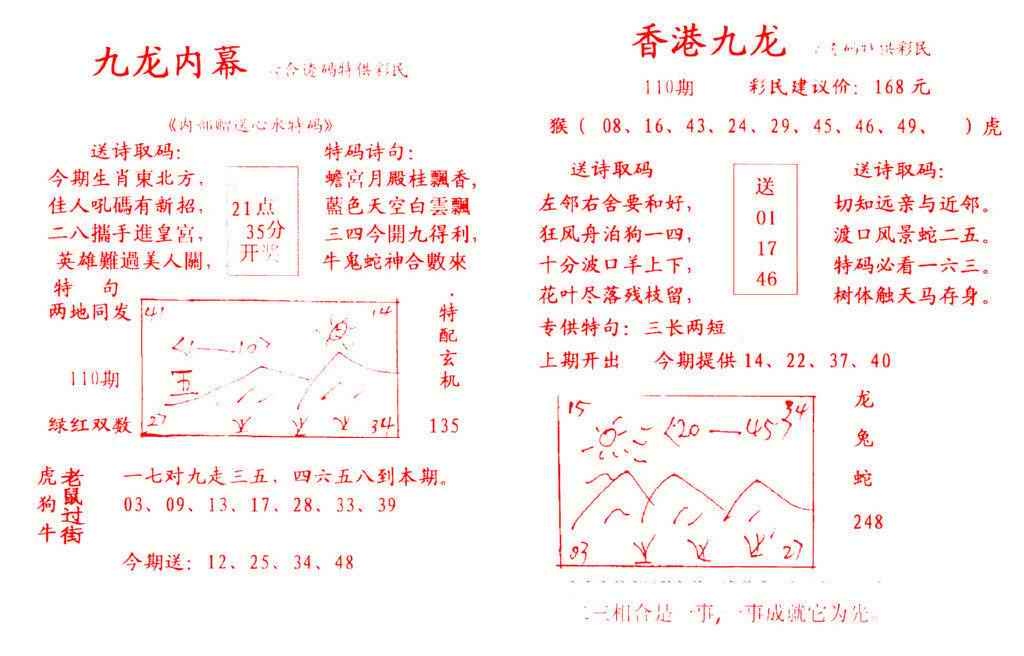 九龙内幕 六合透码特供彩民
《内部赠送心水特码》
送诗取码：
今期生肖東北方，
佳人吼碼有新招，
二八攜手進皇宮，
英雄難過美人關，
21点
35分
开奖
特码诗句：
蟾宮月殿桂飄香，
藍色天空白雲飄
三四今開九得利，
牛鬼蛇神合數來
特 句
两地同发
110期
绿红双数
41 14
<1—10>
五
27 34
特配玄机
135
虎狗牛
老鼠过街
一七对九走三五，四六五八到本期。
03、09、13、17、28、33、39
今期送：12、25、34、48
香港九龙 码特供彩民
110期 彩民建议价：168元
猴（ 08、16、43、24、29、45、46、49、 ）虎
送诗取码
左邻右舍要和好，
狂风舟泊狗一四，
十分波口羊上下，
花叶尽落残枝留，
送
01
17
46
送诗取码：
切知远亲与近邻。
渡口风景蛇二五。
特码必看一六三。
树体触天马存身。
专供特句：三长两短
上期开出 今期提供14、22、37、40
15 34
<20—45>
03 27
龙
兔
蛇
248
二三相合是一事，一事成就它为光。